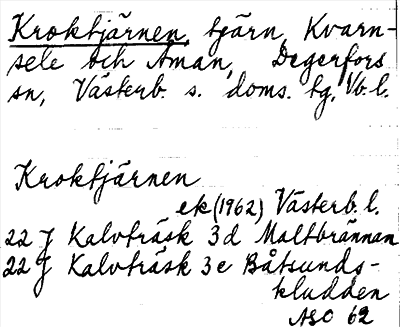 Kroktjärnen, tjärn, Kvarn-
sele och Åman, Degerfors
sn, Västerb. s. doms. tg, Vb. l.
Kroktjärnen
ek (1962) Västerb. l.
22 J Kalvträsk 3 d Maltbrännan
22 J Kalvträsk 3 e Båtsunds-
kludden
ASO 62